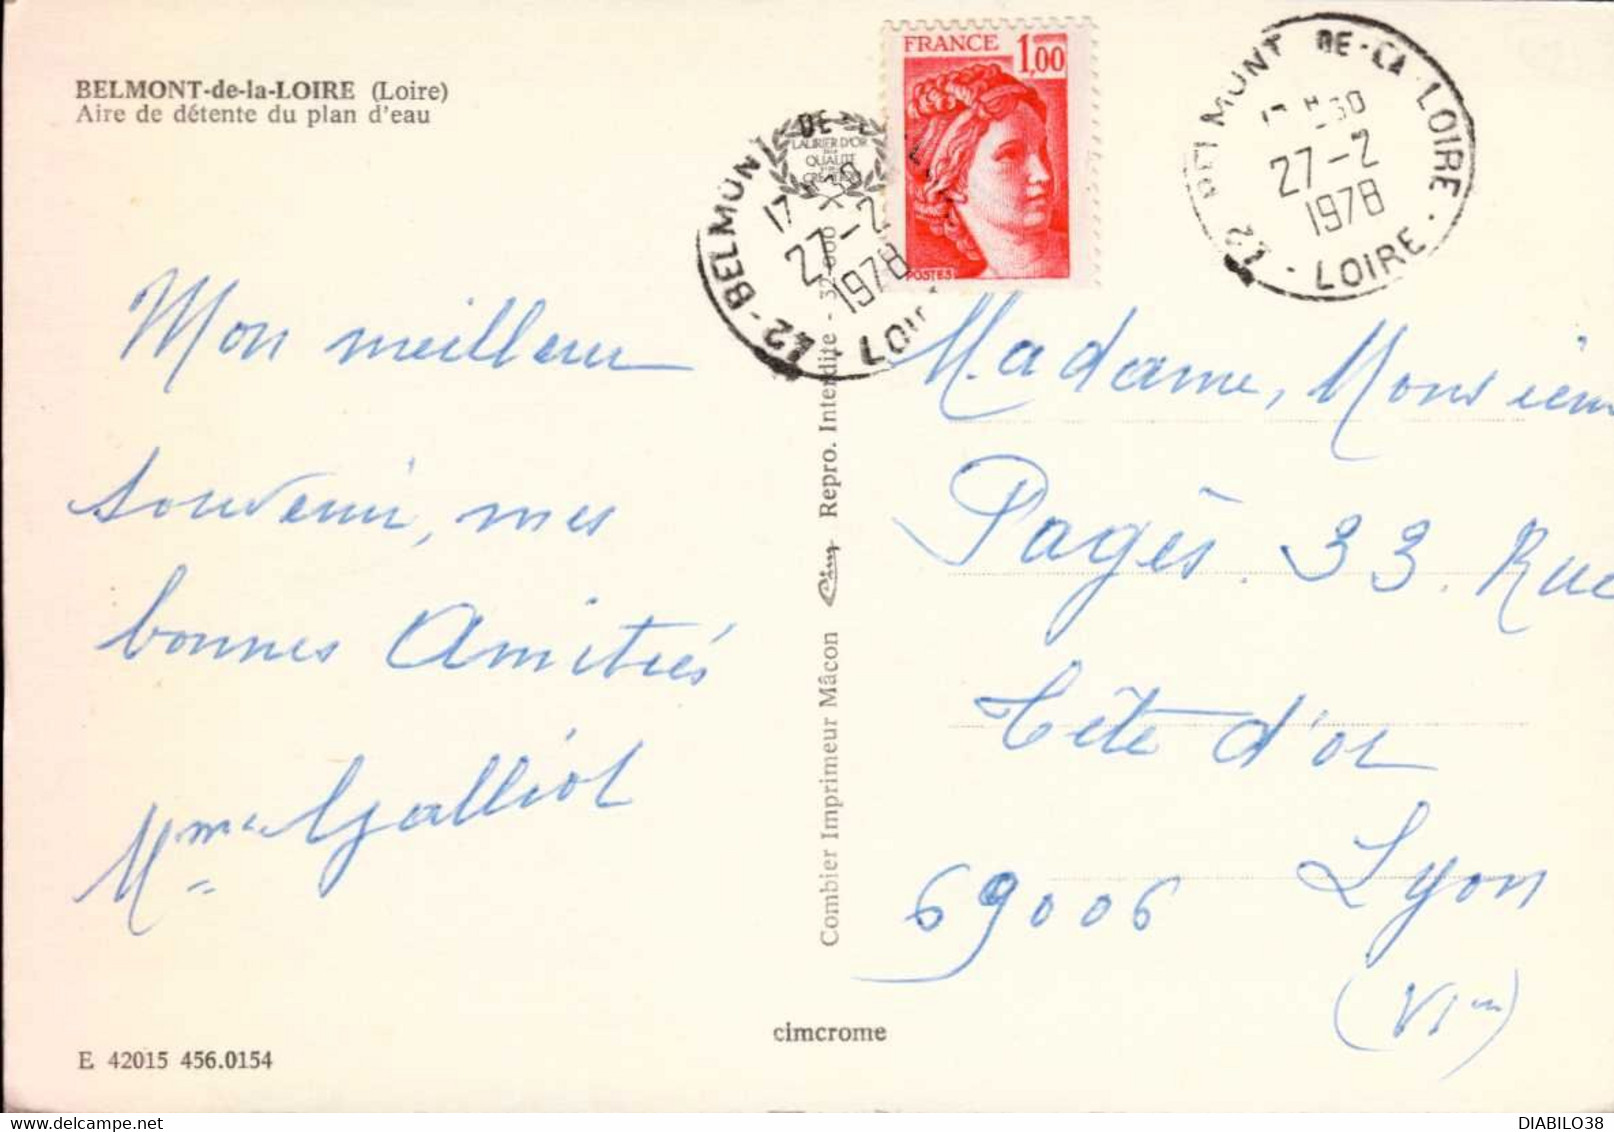 BELMONT-de-la-LOIRE (Loire)
Aire de détente du plan d'eau
Mon meilleur
souvenir, mes
bonnes Amitiés
Mme Galliot
E 42015 456.0154
LAURIER D'OR
QUALITÉ
42 - BELMONT DE-L
17 30
27-2
1978
LOIR
FRANCE 1,00
POSTES
42 BELMONT DE-LA-LOIRE
30
27-2
1978
- LOIRE -
Combier Imprimeur Mâcon Cim Repro. Interdite -
cimcrome
Madame, Monsieur
Pagès. 33. Rue
Tête d'or
69006 Lyon
(VIem)
DIABILO38